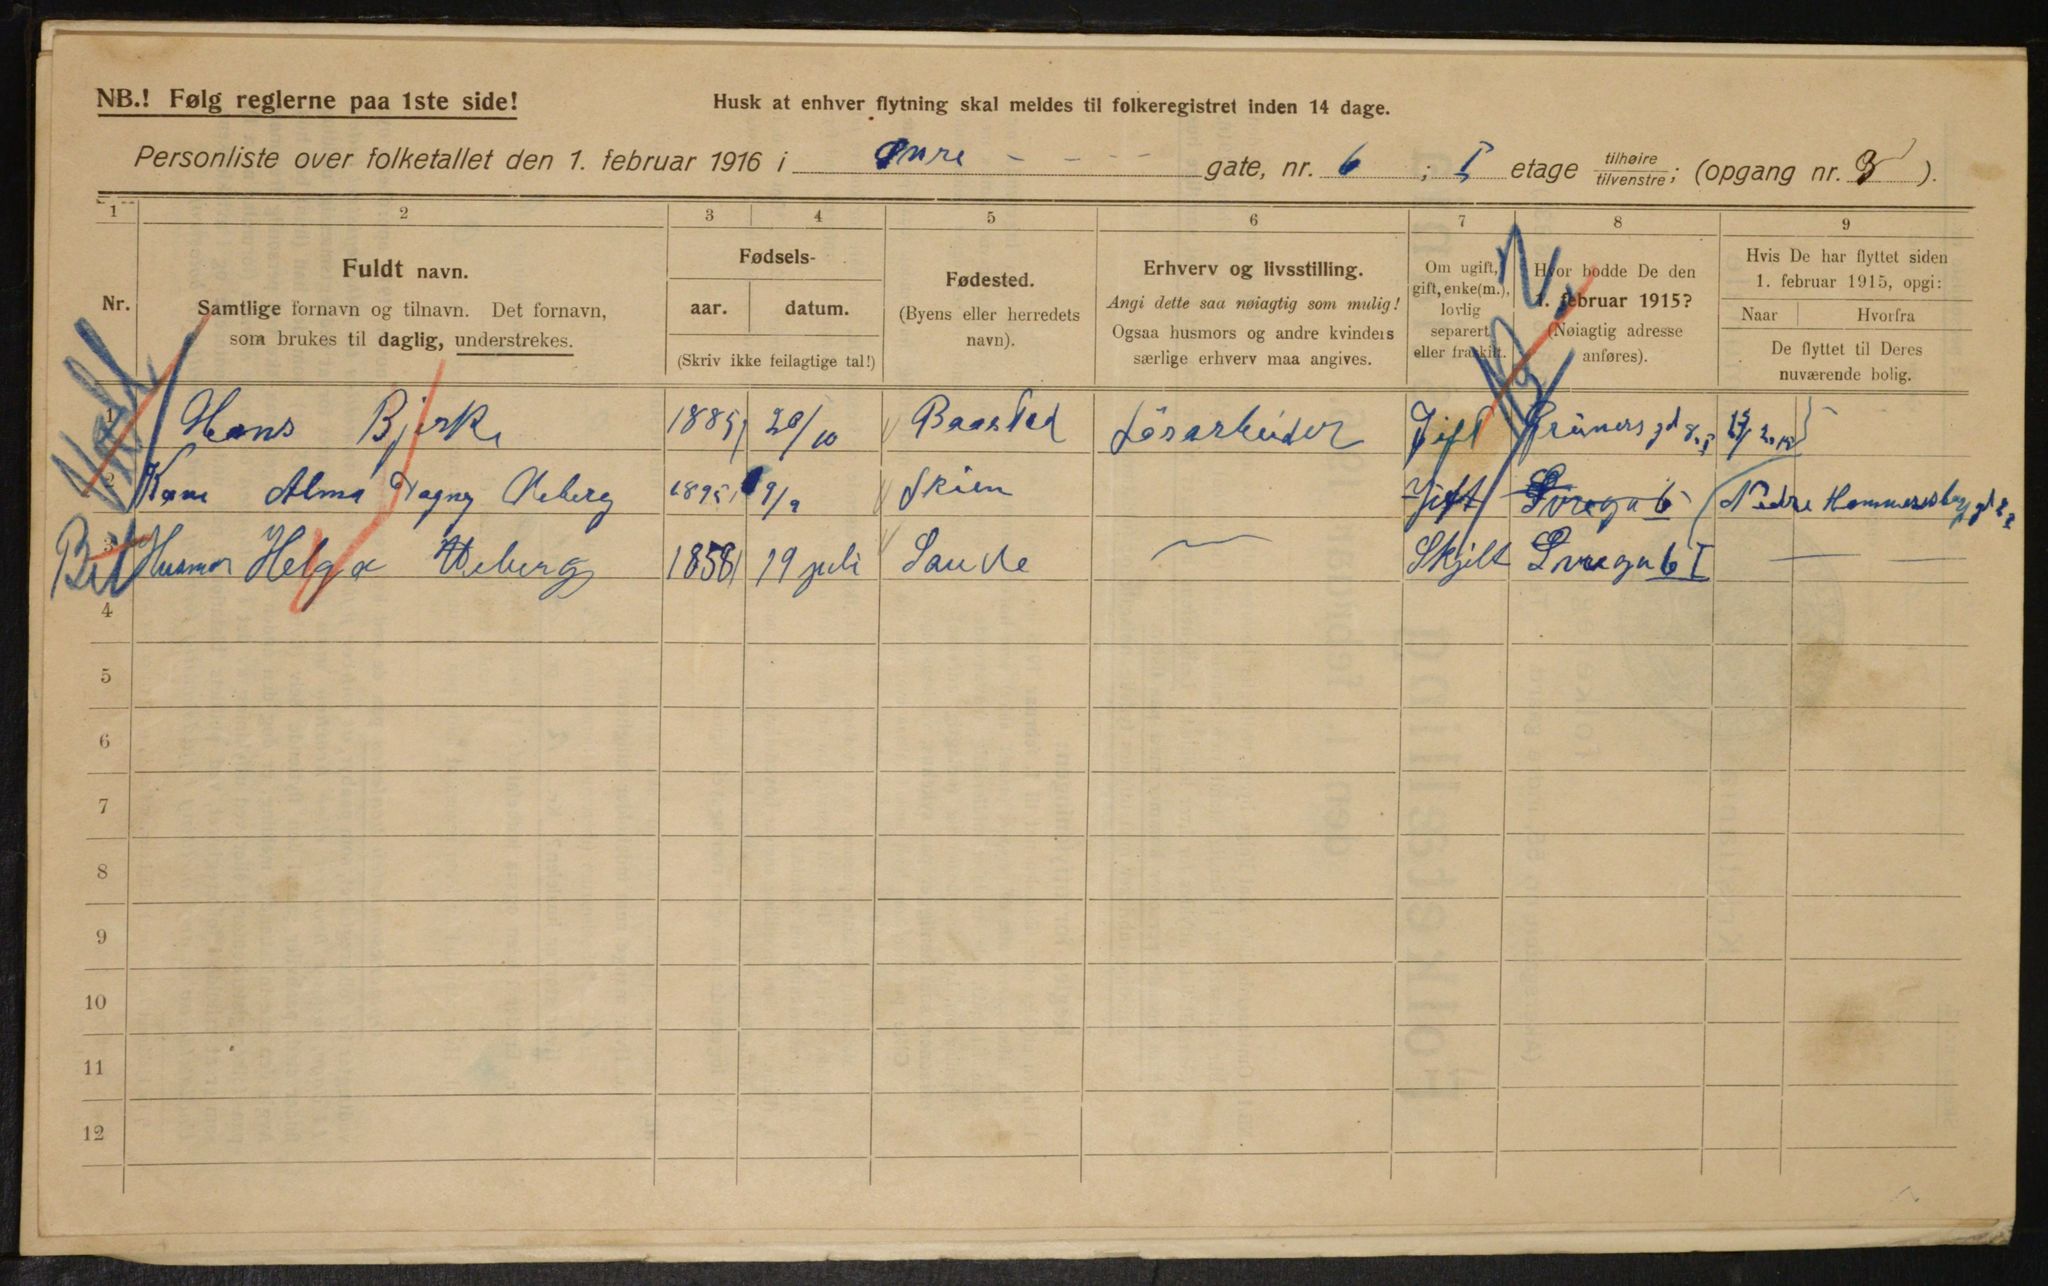 NB.! Følg reglerne paa 1ste side!
Husk at enhver flytning skal meldes til folkeregistret inden 14 dage.
Personliste over folketallet den 1. februar 1916 i gate, nr. 6 ; I etage tilhøire tilvenstre; (opgang nr. ).
1 2 3 4 5 6 7 8 9
Nr.
Fuldt navn.
Samtlige fornavn og tilnavn. Det fornavn,
som brukes til daglig, understrekes.
Fødsels-
aar. datum.
(Skriv ikke feilagtige tal!)
Fødested.
(Byens eller herredets
navn).
Erhverv og livsstilling.
Angi dette saa nøiagtig som mulig!
Ogsaa husmors og andre kvinders
særlige erhverv maa angives.
Om ugift,
gift, enke(m.),
lovlig
separert
eller fraskilt.
Hvor bodde De den
1. februar 1915?
(Nøiagtig adresse
anføres).
Hvis De har flyttet siden
1. februar 1915, opgi:
Naar Hvorfra
De flyttet til Deres
nuværende bolig.
1 Hans Bjerke 1885 20/10 Baastad Løsarbeider Gift Grüners gd
2 Kone Alma Dagny 1895 9/9 Skien Gift Nedre Hammersborg gd 22
3 Husmor Helga 1858 19 juli Saude Skjilt 6 I
4
5
6
7
8
9
10
11
12